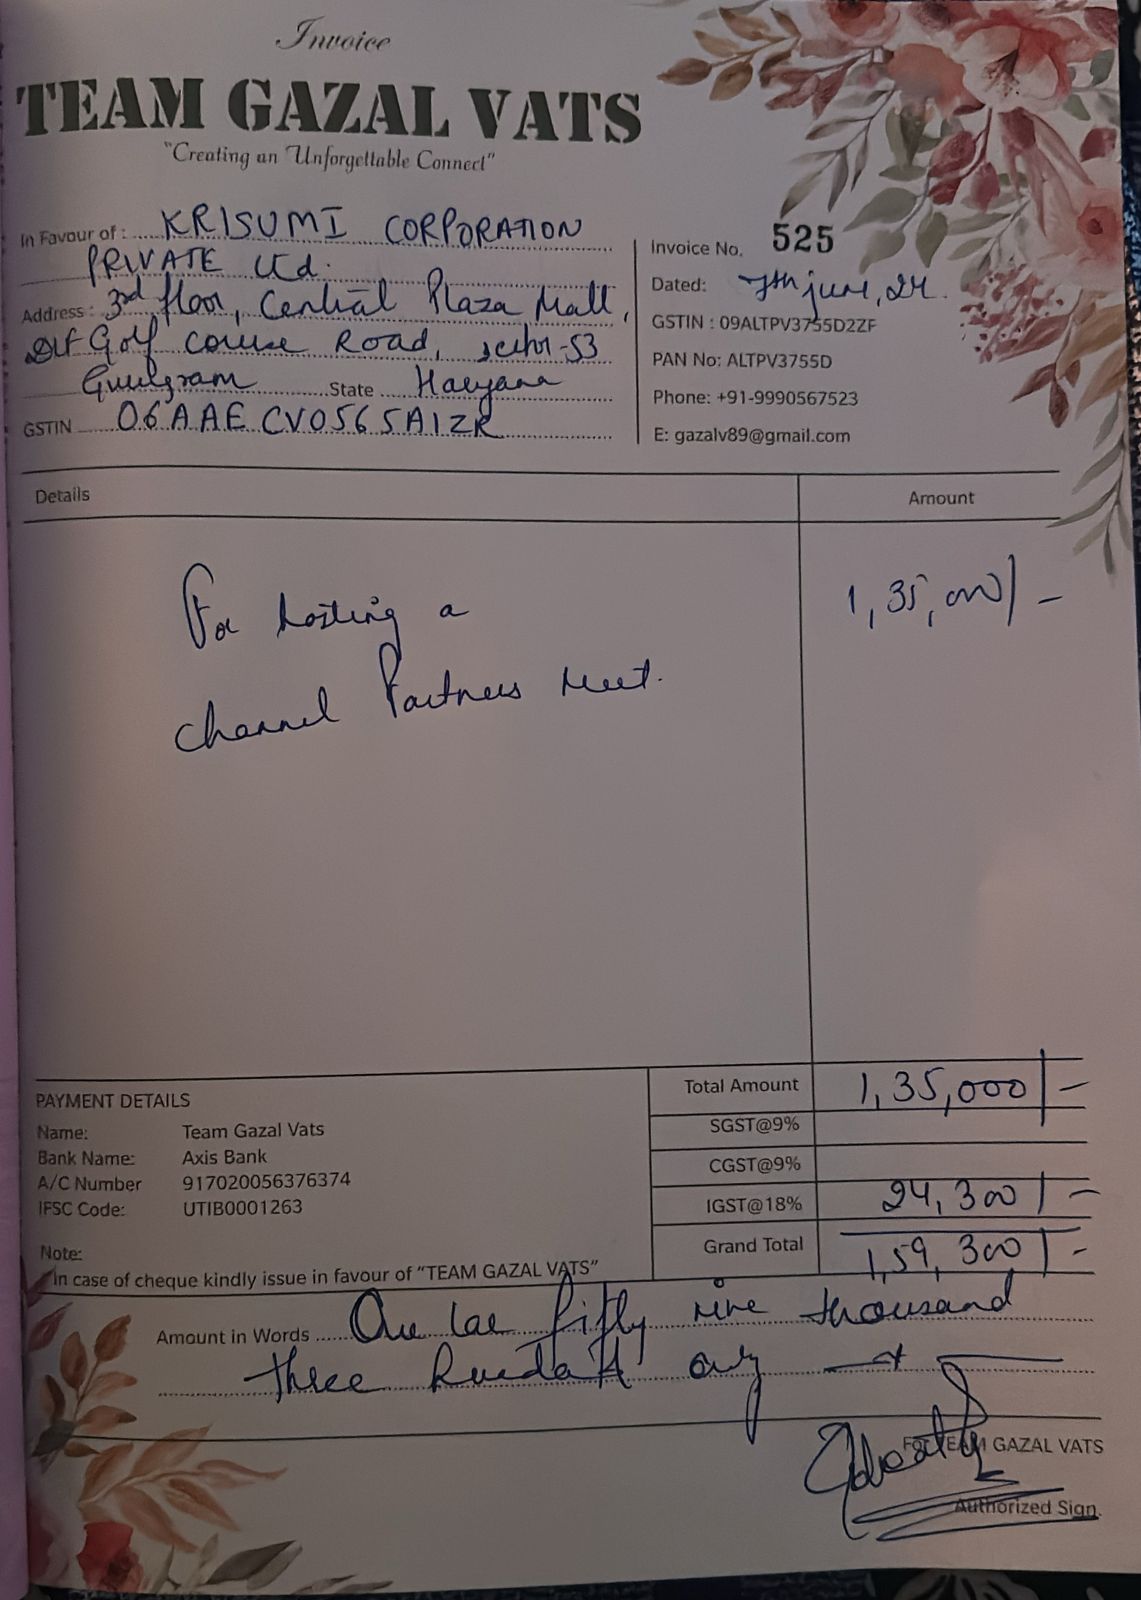 Invoice
TEAM GAZAL VATS
"Creating an Unforgettable Connect"
In Favour of : KRISUMI CORPORATION
PRIVATE Ltd.
Address : 3rd floor, Central Plaza Mall,
DLF Golf Course Road, sector-53
Gurugram State Haryana
GSTIN 06AAECV0565A1ZR
Invoice No. 525
Dated: 7th june, 24.
GSTIN : 09ALTPV3755D2ZF
PAN No: ALTPV3755D
Phone: +91-9990567523
E: gazalv89@gmail.com
Details Amount
For hosting a 1,35,000/-
channel Partners Meet.
Total Amount 1,35,000/-
SGST@9%
CGST@9%
IGST@18% 24,300/-
Grand Total 1,59,300/-
PAYMENT DETAILS
Name: Team Gazal Vats
Bank Name: Axis Bank
A/C Number 917020056376374
IFSC Code: UTIB0001263
Note:
In case of cheque kindly issue in favour of "TEAM GAZAL VATS"
Amount in Words One lac fifty nine thousand
three hundred only
For TEAM GAZAL VATS
Authorized Sign.